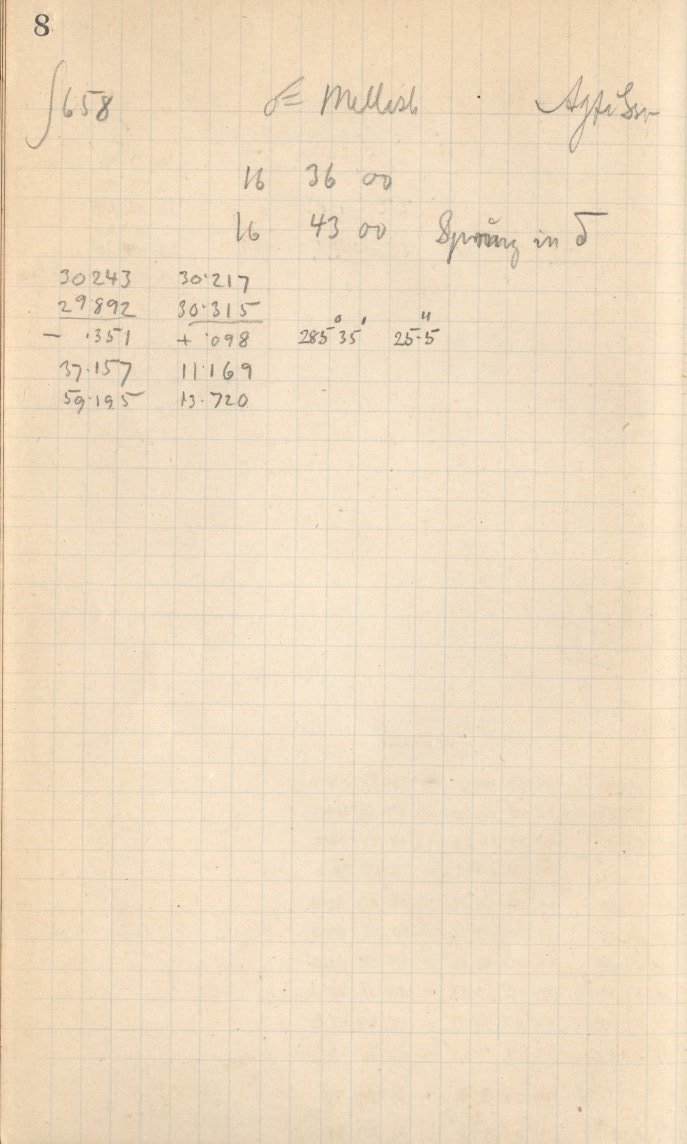 8
∫658 Mellish
16 36 00
16 43 00 Sprung in δ
30243 30·217
29·892 30·315
- ·351 + ·098 285° 35' 25·5"
37·157 11·169
59·195 13·720